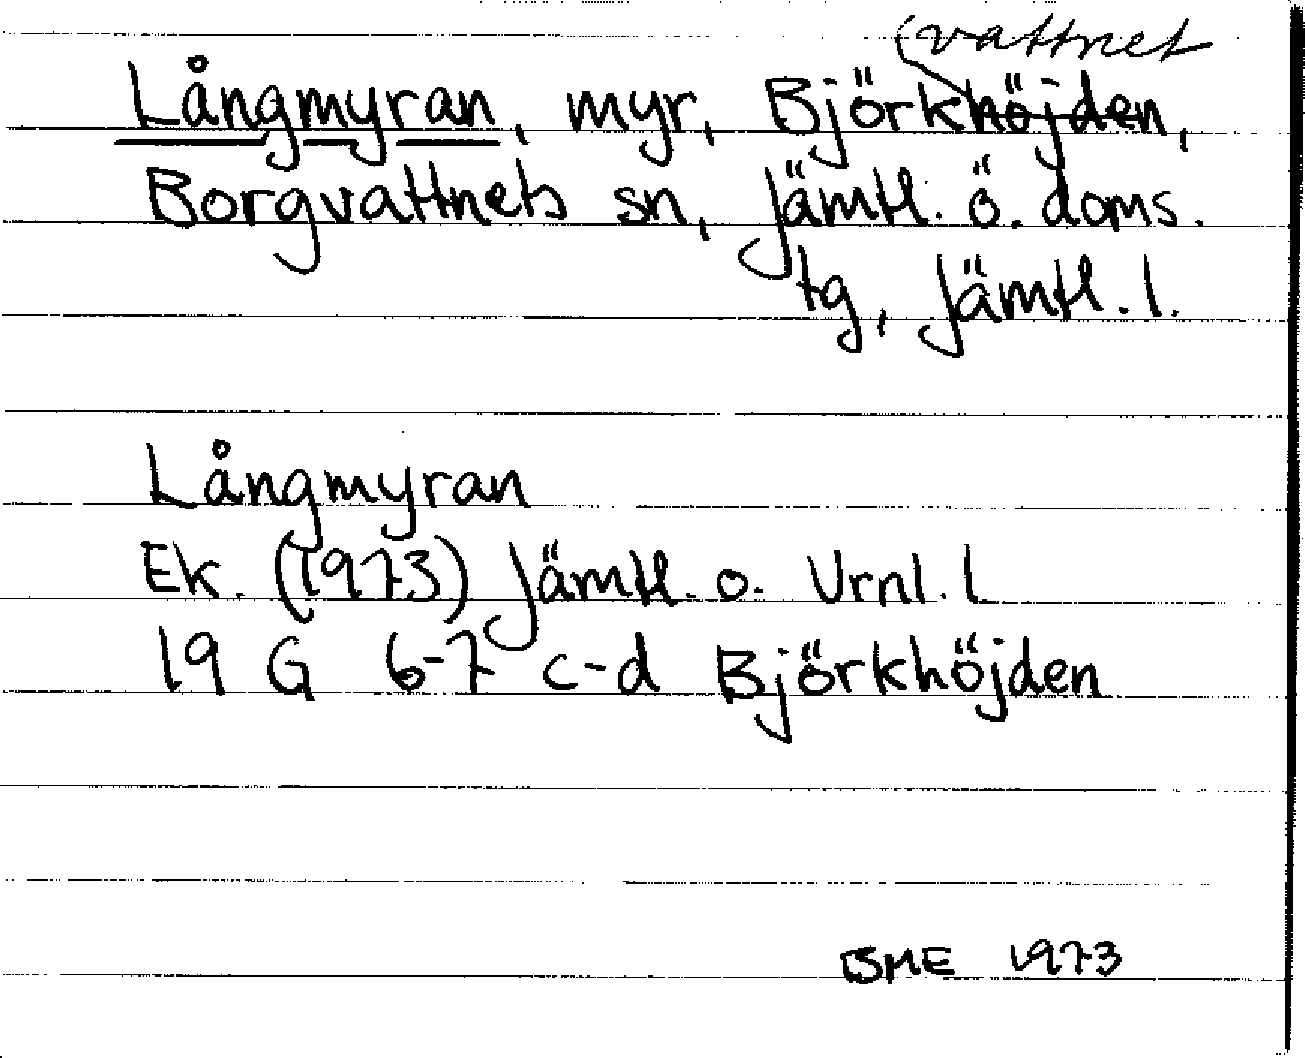 vattnet
Långmyran, myr, Björkhöjden,
Borgvattnets sn, Jämtl. ö. doms.
tg, Jämtl. l.
Långmyran
Ek. (1973) Jämtl. o. Vrnl. l
19 G 6-7 c-d Björkhöjden
BME 1973